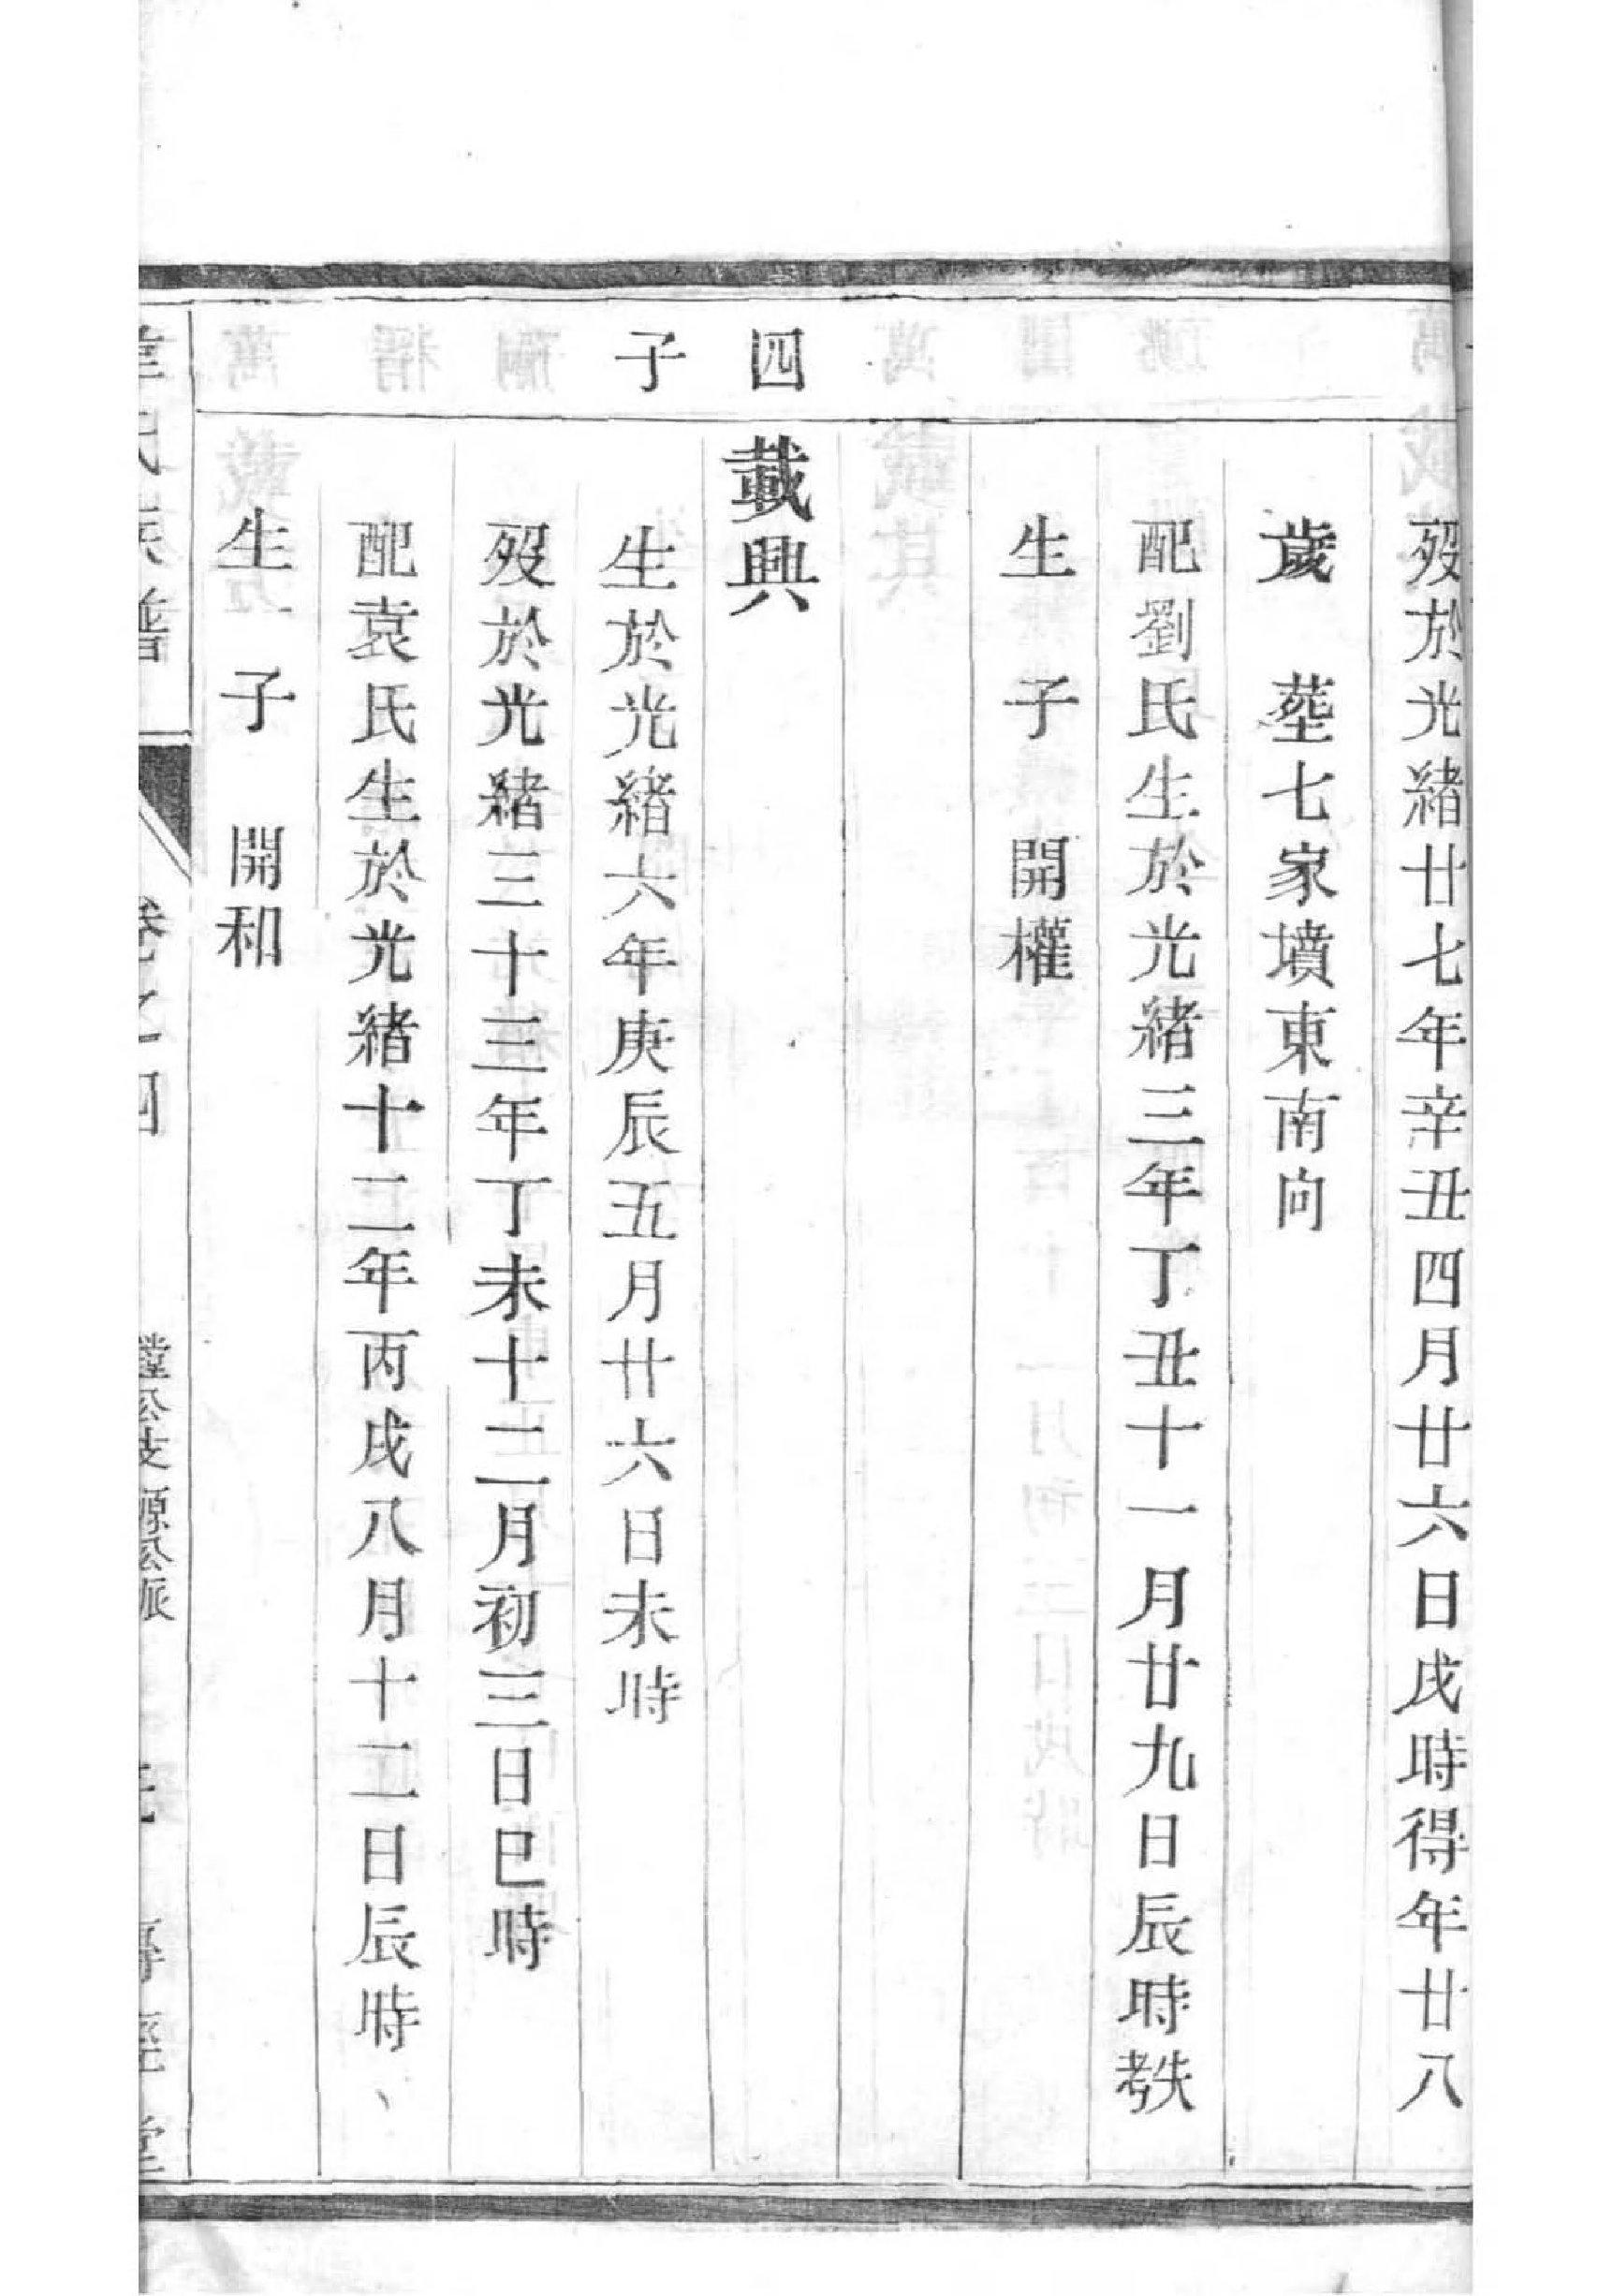 歿於光緒廿七年辛丑四月廿六日戌時得年廿八
歲 塟七家墳東南向
配劉氏生於光緒三年丁丑十一月廿九日辰時失考
生 子 開權
四子
載興
生於光緒六年庚辰五月廿六日未時
歿於光緒三十三年丁未十二月初三日巳時
配袁氏生於光緒十二年丙戌八月十二日辰時、
生一子 開和
氏族譜 卷之四 公支源公派